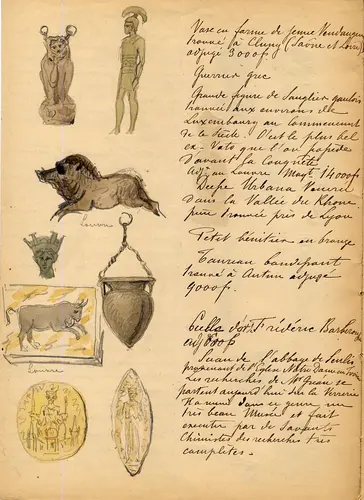 Vase en forme de jeune Vendangeur
trouvé à Cluny (Saône et Loire)
adjugé 3000f.
Guerrier grec
Grande figure de Sanglier gaulois
trouvé aux environs de
Luxembourg au commencement
de le Siècle. C'est le plus bel
ex-Voto que l'on possède
d'avant la Conquête
Adj. au Louvre 14000f
Deepe Urbana Venere
dans la Vallée du Rhone
trouvée près de Lyon
Petit bénitier en bronze
Taureau bondissant
trouvé à Autun adjugé
9000f.
Bulle d'or Frédéric Barberousse
Sceau de l'abbaye de Senlis
provenant de l'Eglise Notre Dame
Les recherches de Mr Guean se
portent aujourd'hui sur la Verrerie
Romaine dans ce genre un
très beau Musée et fait
executer par de Savants
Chimistes des recherches très
complètes.
Louvre
Louvre